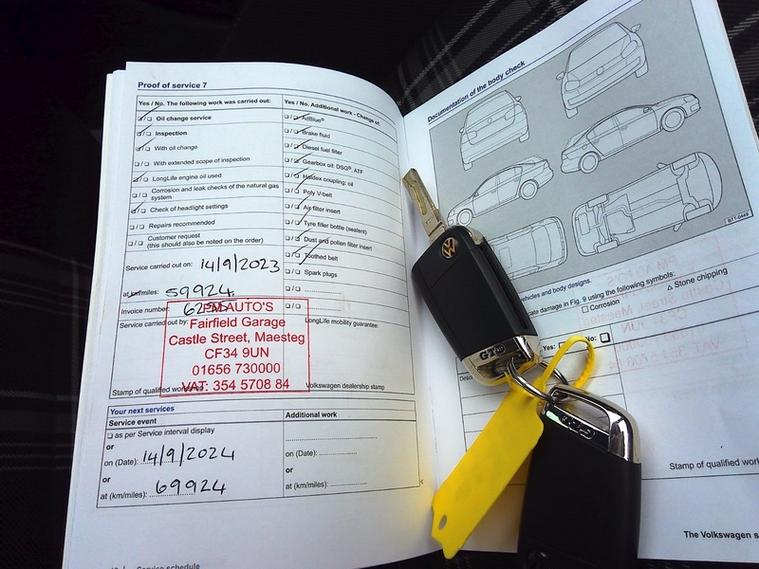 Proof of service 7
Yes / No. The following work was carried out:
Oil change service
Inspection
With oil change
With extended scope of inspection
LongLife engine oil used
Corrosion and leak checks of the natural gas
system
Check of headlight settings
Repairs recommended
Customer request
(this should also be noted on the order)
Service carried out on: 14/9/2023
at km/miles: 59924
Invoice number:
Service carried out by:
PM AUTO'S
Fairfield Garage
Castle Street, Maesteg
CF34 9UN
01656 730000
VAT: 354 5708 84
Stamp of qualified
Yes / No. Additional work - Change of:
AdBlue®
Brake fluid
Diesel fuel filter
Gearbox oil: DSG®, ATF
Haldex coupling: oil
Poly V-belt
Air filter insert
Tyre filler bottle (sealant)
Dust and pollen filter insert
Toothed belt
Spark plugs
LongLife mobility guarantee:
Volkswagen dealership stamp
Your next services
Service event
as per Service interval display
or
on (Date): 14/9/2024
or
at (km/miles): 69924
Additional work
on (Date):
or
at (km/miles):
Service schedule
Documentation of the body check
vehicles and body designs.
damage in Fig. 9 using the following symbols:
Corrosion
△ Stone chipping
Yes:
No:
Stamp of qualified
The Volkswagen
GTD